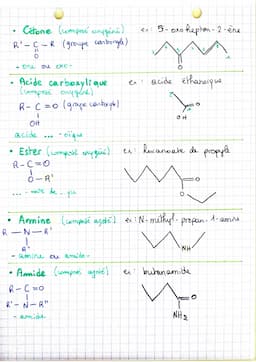 • Cétone (composé oxygéné) ex: 5-oxo Heptan-2-ène
R'-C-R (groupe carbonyle)
O
+ one ou oxo-
• Acide carboxylique ex: acide éthanoïque
(composé oxygéné)
R-C=O (groupe carboxyle)
OH
OH
acide ... -oïque
• Ester (composé oxygéné) ex: de propyle
R-C=O
O-R'
O
... -oate de -yle
• Amine (composé azoté) ex: N-méthyl-propan-1-amine
R-N-R'
R"
NH
-amine ou amino-
• Amide (composé azoté) ex: butanamide
R-C=O
R'-N-R"
O
NH2
-amide